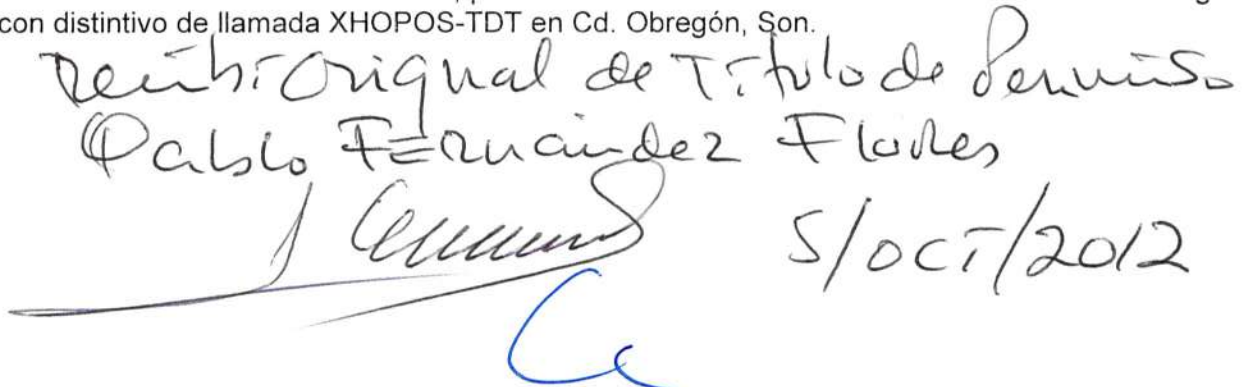 con distintivo de llamada XHOPOS-TDT en Cd. Obregón, Son.
Recibí Original de Título de Permiso
Pablo Fernández Flores
5/OCT/2012